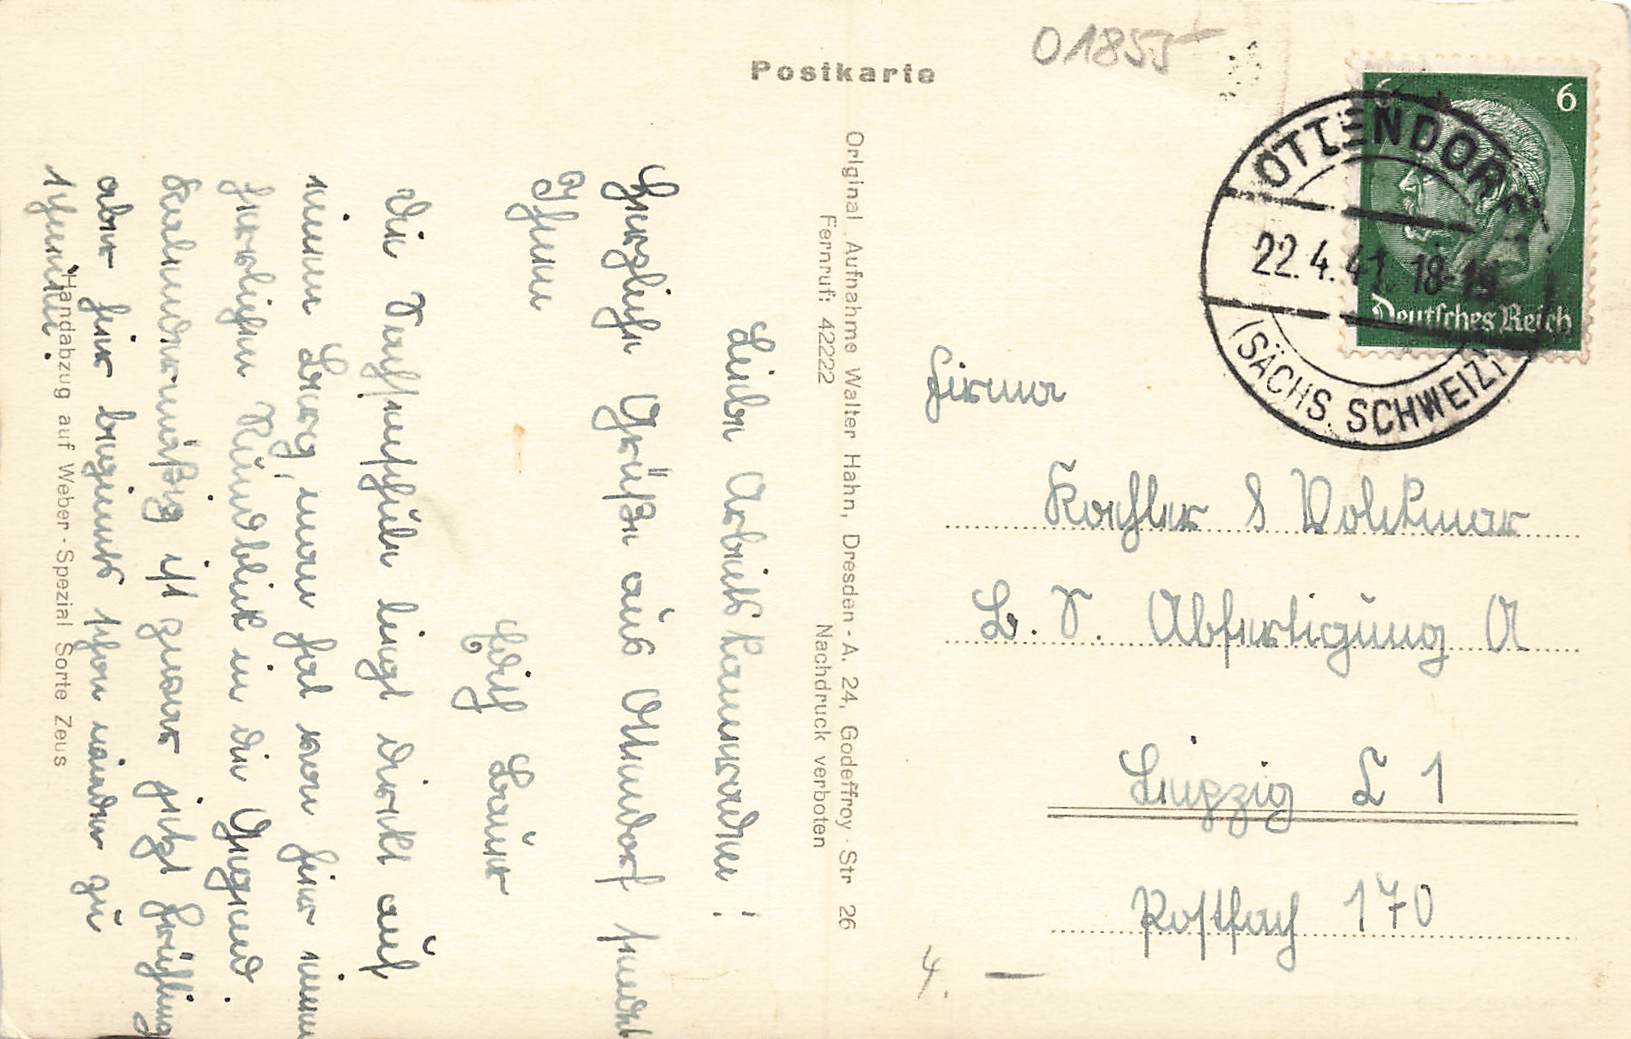 Postkarte
01855
6
6
Deutsches Reich
OTTENDORF
22.4.41.18-19
(SÄCHS. SCHWEIZ)
Firma
Koehler & Volckmar
L. V. Abfertigung A
Leipzig C 1
Postfach 170
4. —
Original Aufnahme Walter Hahn, Dresden - A. 24, Godeffroy - Str 26
Fernruf: 42222 Nachdruck verboten
Liebe Arbeitskameraden!
Herzliche Grüße aus Ottendorf sendet
Ihnen
Lauer
Die Dorfschule liegt direkt auf
einem Berg, man hat von hier einen
herrlichen Rundblick in die Gegend.
Kalendermäßig ist zwar jetzt Frühling
aber hier beginnts schon wieder zu
schneien.
Handabzug auf Weber - Spezial Sorte Zeus